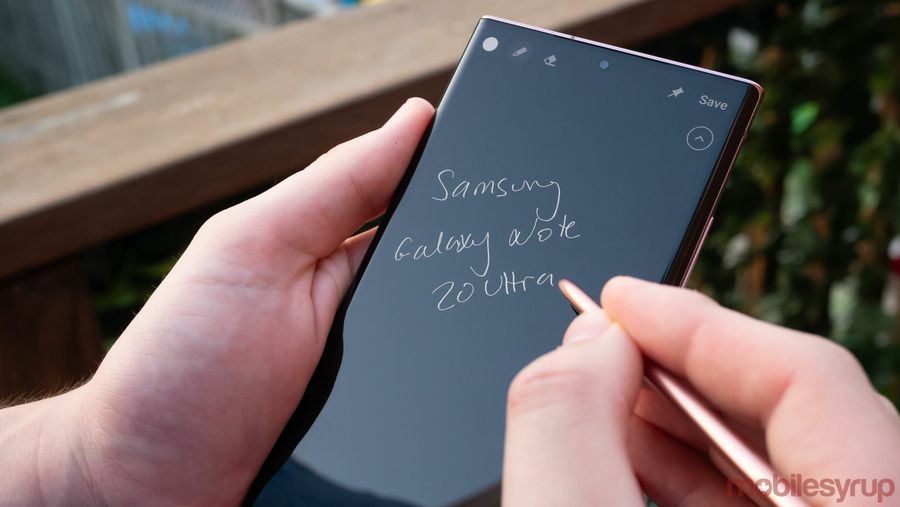 Save
Samsung
Galaxy Note
20 Ultra
mobilesyrup